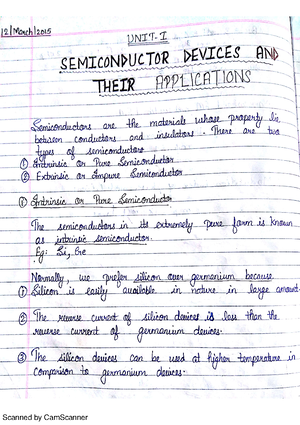 12/March/2015
UNIT-I
SEMICONDUCTOR DEVICES AND
THEIR APPLICATIONS
Semiconductors are the materials whose property lie
between conductors and insulators. There are two
types of semiconductors
① Intrinsic or Pure Semiconductor
② Extrinsic or Impure Semiconductor
① Intrinsic or Pure Semiconductor
The semiconductors in its extremely pure form is known
as intrinsic semiconductor.
Eg: Si, Ge
Normally, we prefer silicon over germanium because
① Silicon is easily available in nature in large amount.
② The reverse current of silicon devices is less than the
reverse current of germanium devices.
③ The silicon devices can be used at higher temperature in
comparison to germanium devices.
Scanned by CamScanner